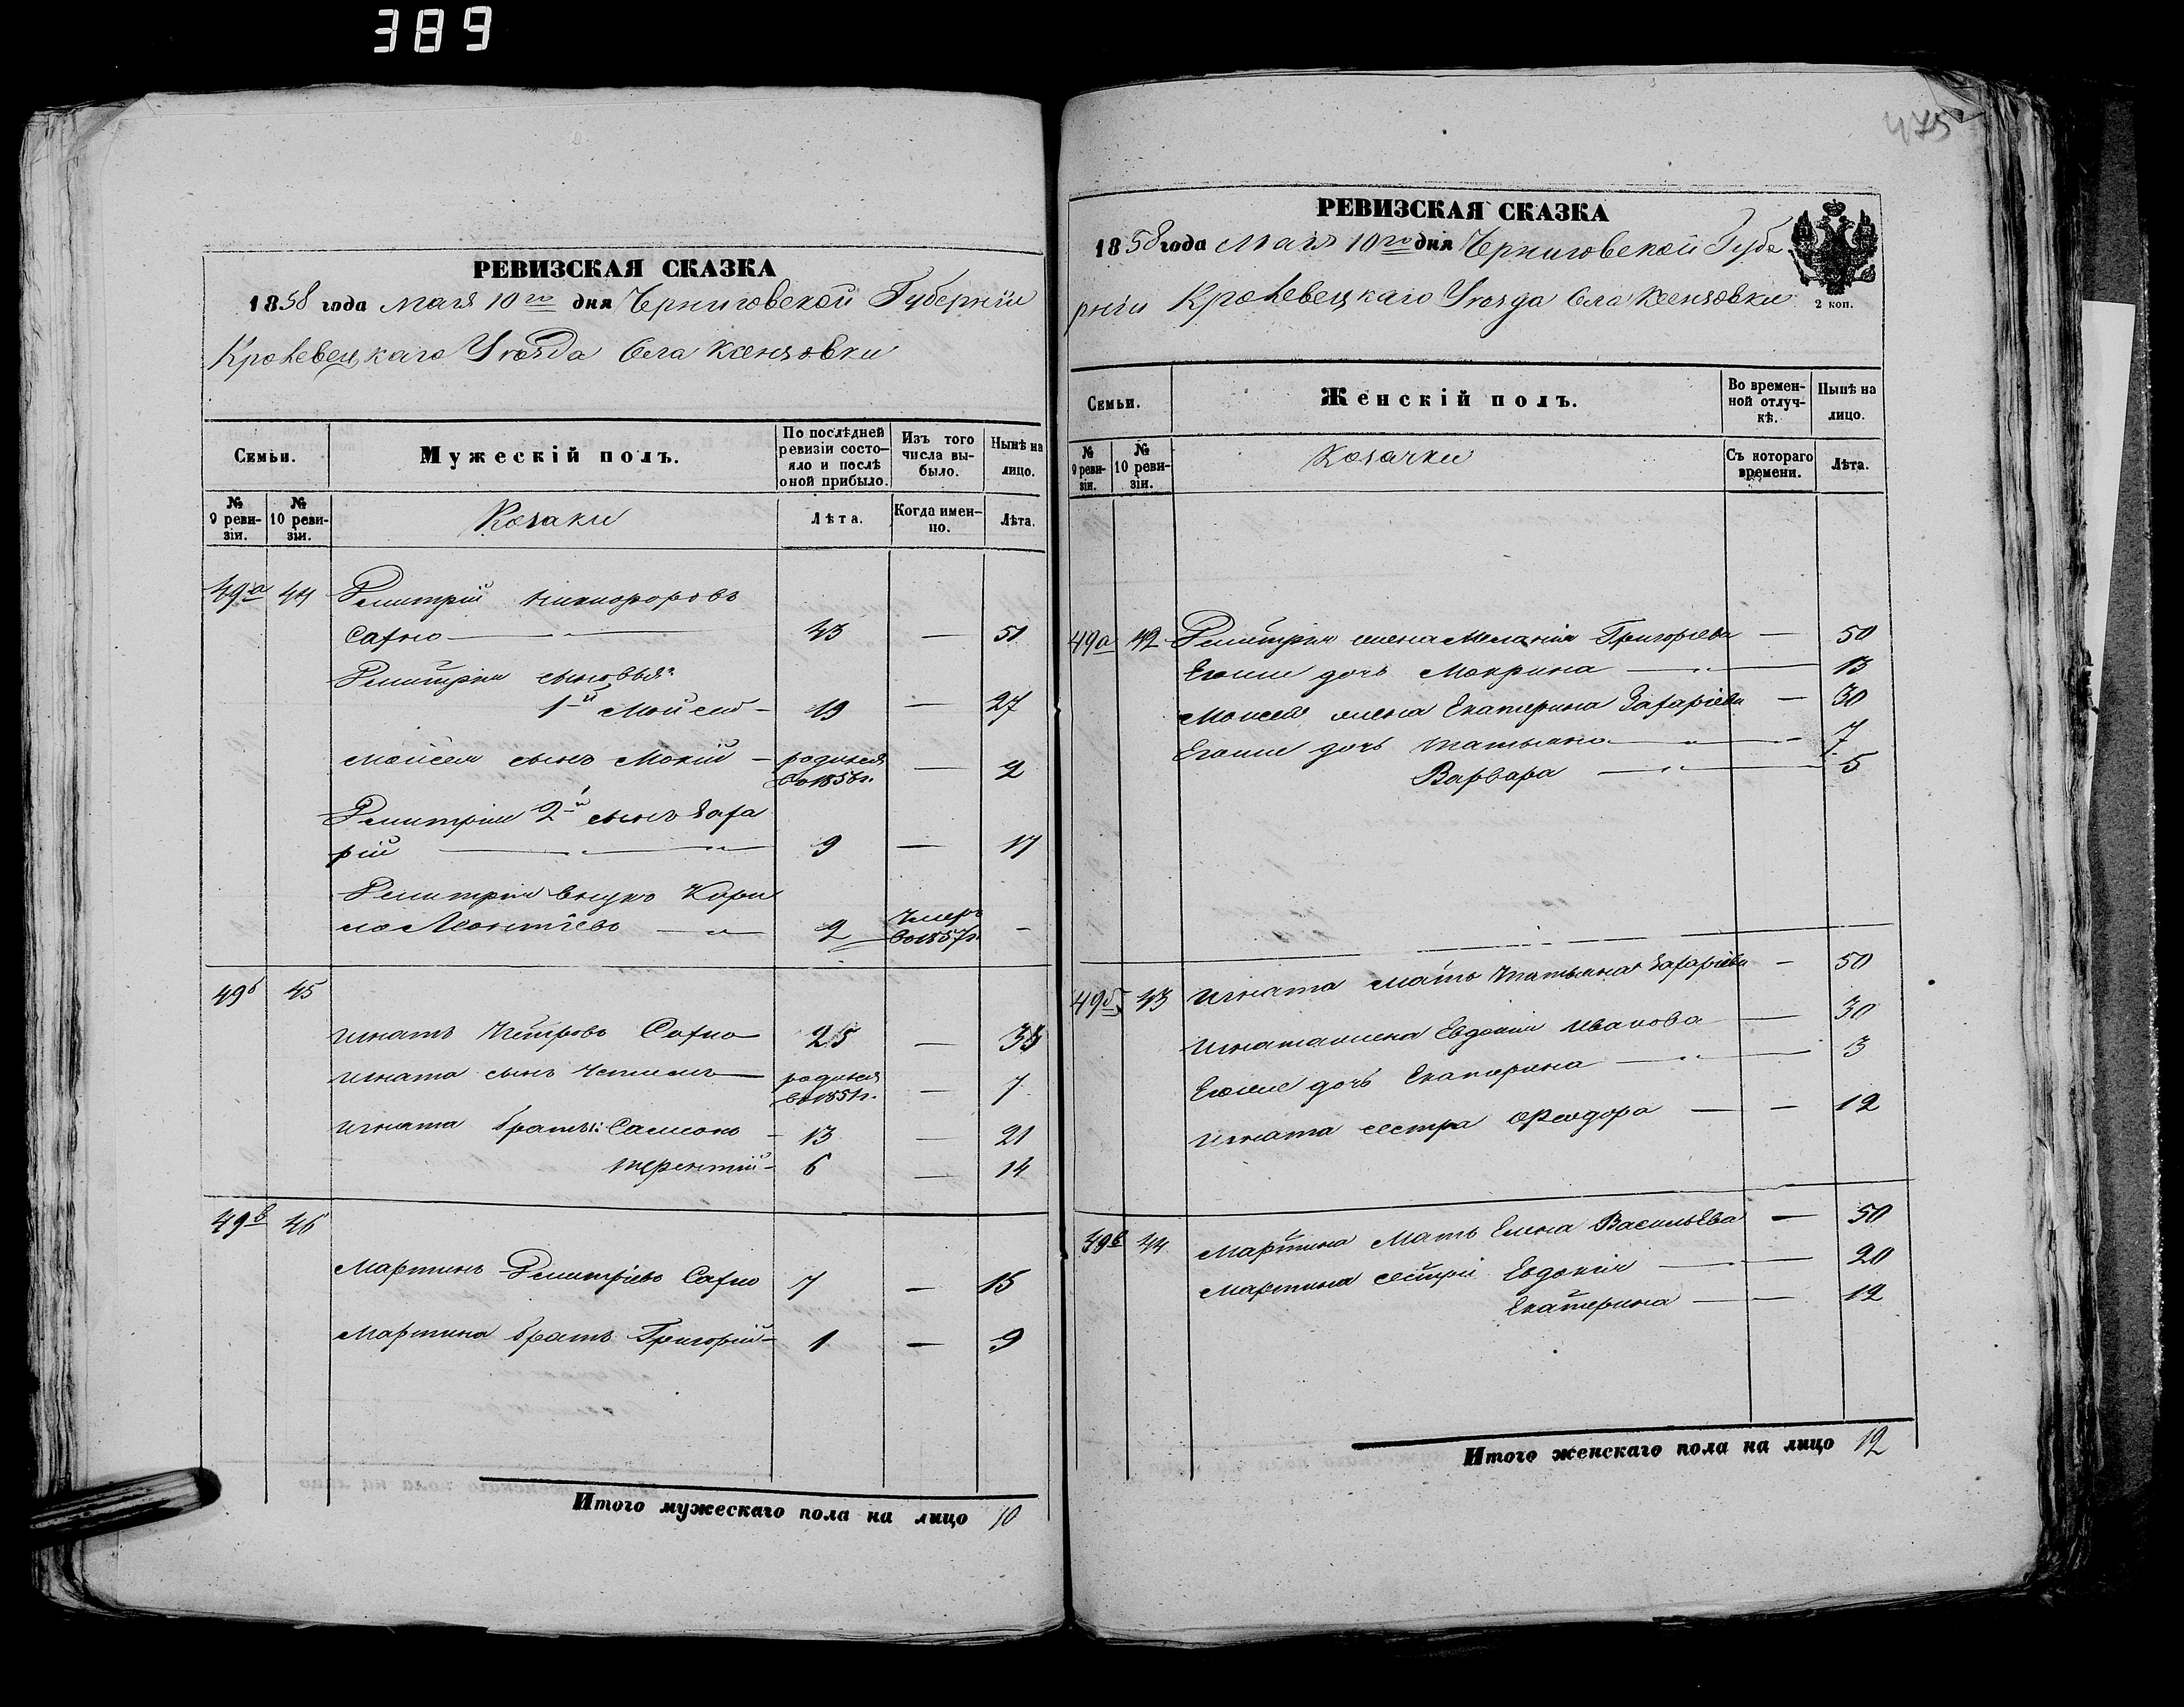 389
475
РЕВИЗСКАЯ СКАЗКА
1858 года мая 10го дня Черниговской Губерніи
Кролевецкаго Уезда Села Ксензовки
Семьи.
Мужескій полъ.
По послѣдней ревизіи состояло и послѣ оной прибыло.
Изъ того числа выбыло.
Нынѣ на лицо.
№ 9 ревизіи.
№ 10 ревизіи.
Козаки
Лѣта.
Когда именно.
Лѣта.
49а 44 Дмитрій Никифоровъ
Сахно 43 — 51
Дмитрія сыновья:
1й Мойсей 19 — 27
Мойсея сынъ Мокій родился во 1856г. — 2
Дмитрія 2й сынъ Заха
рій 9 — 17
Дмитрія внукъ Кири
ло Леонтіевъ 2 Умеръ во 1857г. —
49б 45
Игнатъ Петровъ Сахно 25 — 33
Игната сынъ родился во 1851г. — 7
Игната братья: Самсонъ 13 — 21
Терентій 6 — 14
49в 46
Мартинъ Дмитріевъ Сахно 7 — 15
Мартина братъ Григорій 1 — 9
Итого мужескаго пола на лицо 10
РЕВИЗСКАЯ СКАЗКА
1858 года Мая 10го дня Черниговской Губе
рніи Кролевецкаго Уезда Села Ксензовки
2 коп.
Семьи.
Женскій полъ.
Во временной отлучкѣ.
Нынѣ на лицо.
№ 9 ревизіи.
№ 10 ревизіи.
Козачки
Съ котораго времени.
Лѣта.
49а 42 Дмитрія жена Меланія Григорьева — 50
Егоже дочь Мокрина — 13
Моисея жена Екатерина Захарьева — 30
Егоже дочь Татьяна — 7
Варвара — 5
49б 43 Игната мать Татьяна Захарьева — 50
Игната жена Евдокія Иванова — 30
Егоже дочь Екатерина — 3
Игната сестра Феодора — 12
49в 44 Мартина Мать Елена Васильева — 50
Мартина сестры Евдокія — 20
Екатерина — 12
Итого женскаго пола на лицо 12